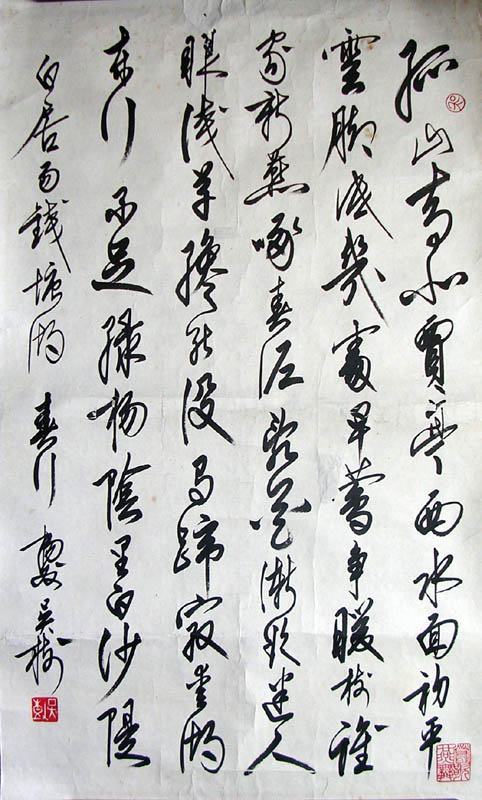 孤山寺北賈亭西水面初平
雲脚低幾處早鶯争暖樹誰
家新燕啄春泥亂花漸欲迷人
眼淺草纔能没馬蹄最愛湖
東行不足緑楊陰里白沙隄
白居易錢塘湖春行 吴樹